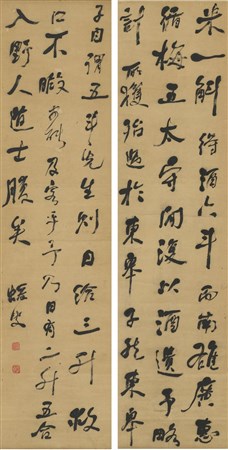 米一斛得酒六斗而南雄廣惠
循梅五太守間復以酒遺予略
計所獲殆過於東皋子然東皋
子自謂五斗先生則日給三升救
口不暇安能及客乎予乃日有二升五合
入野人道士腹矣 蝯叟